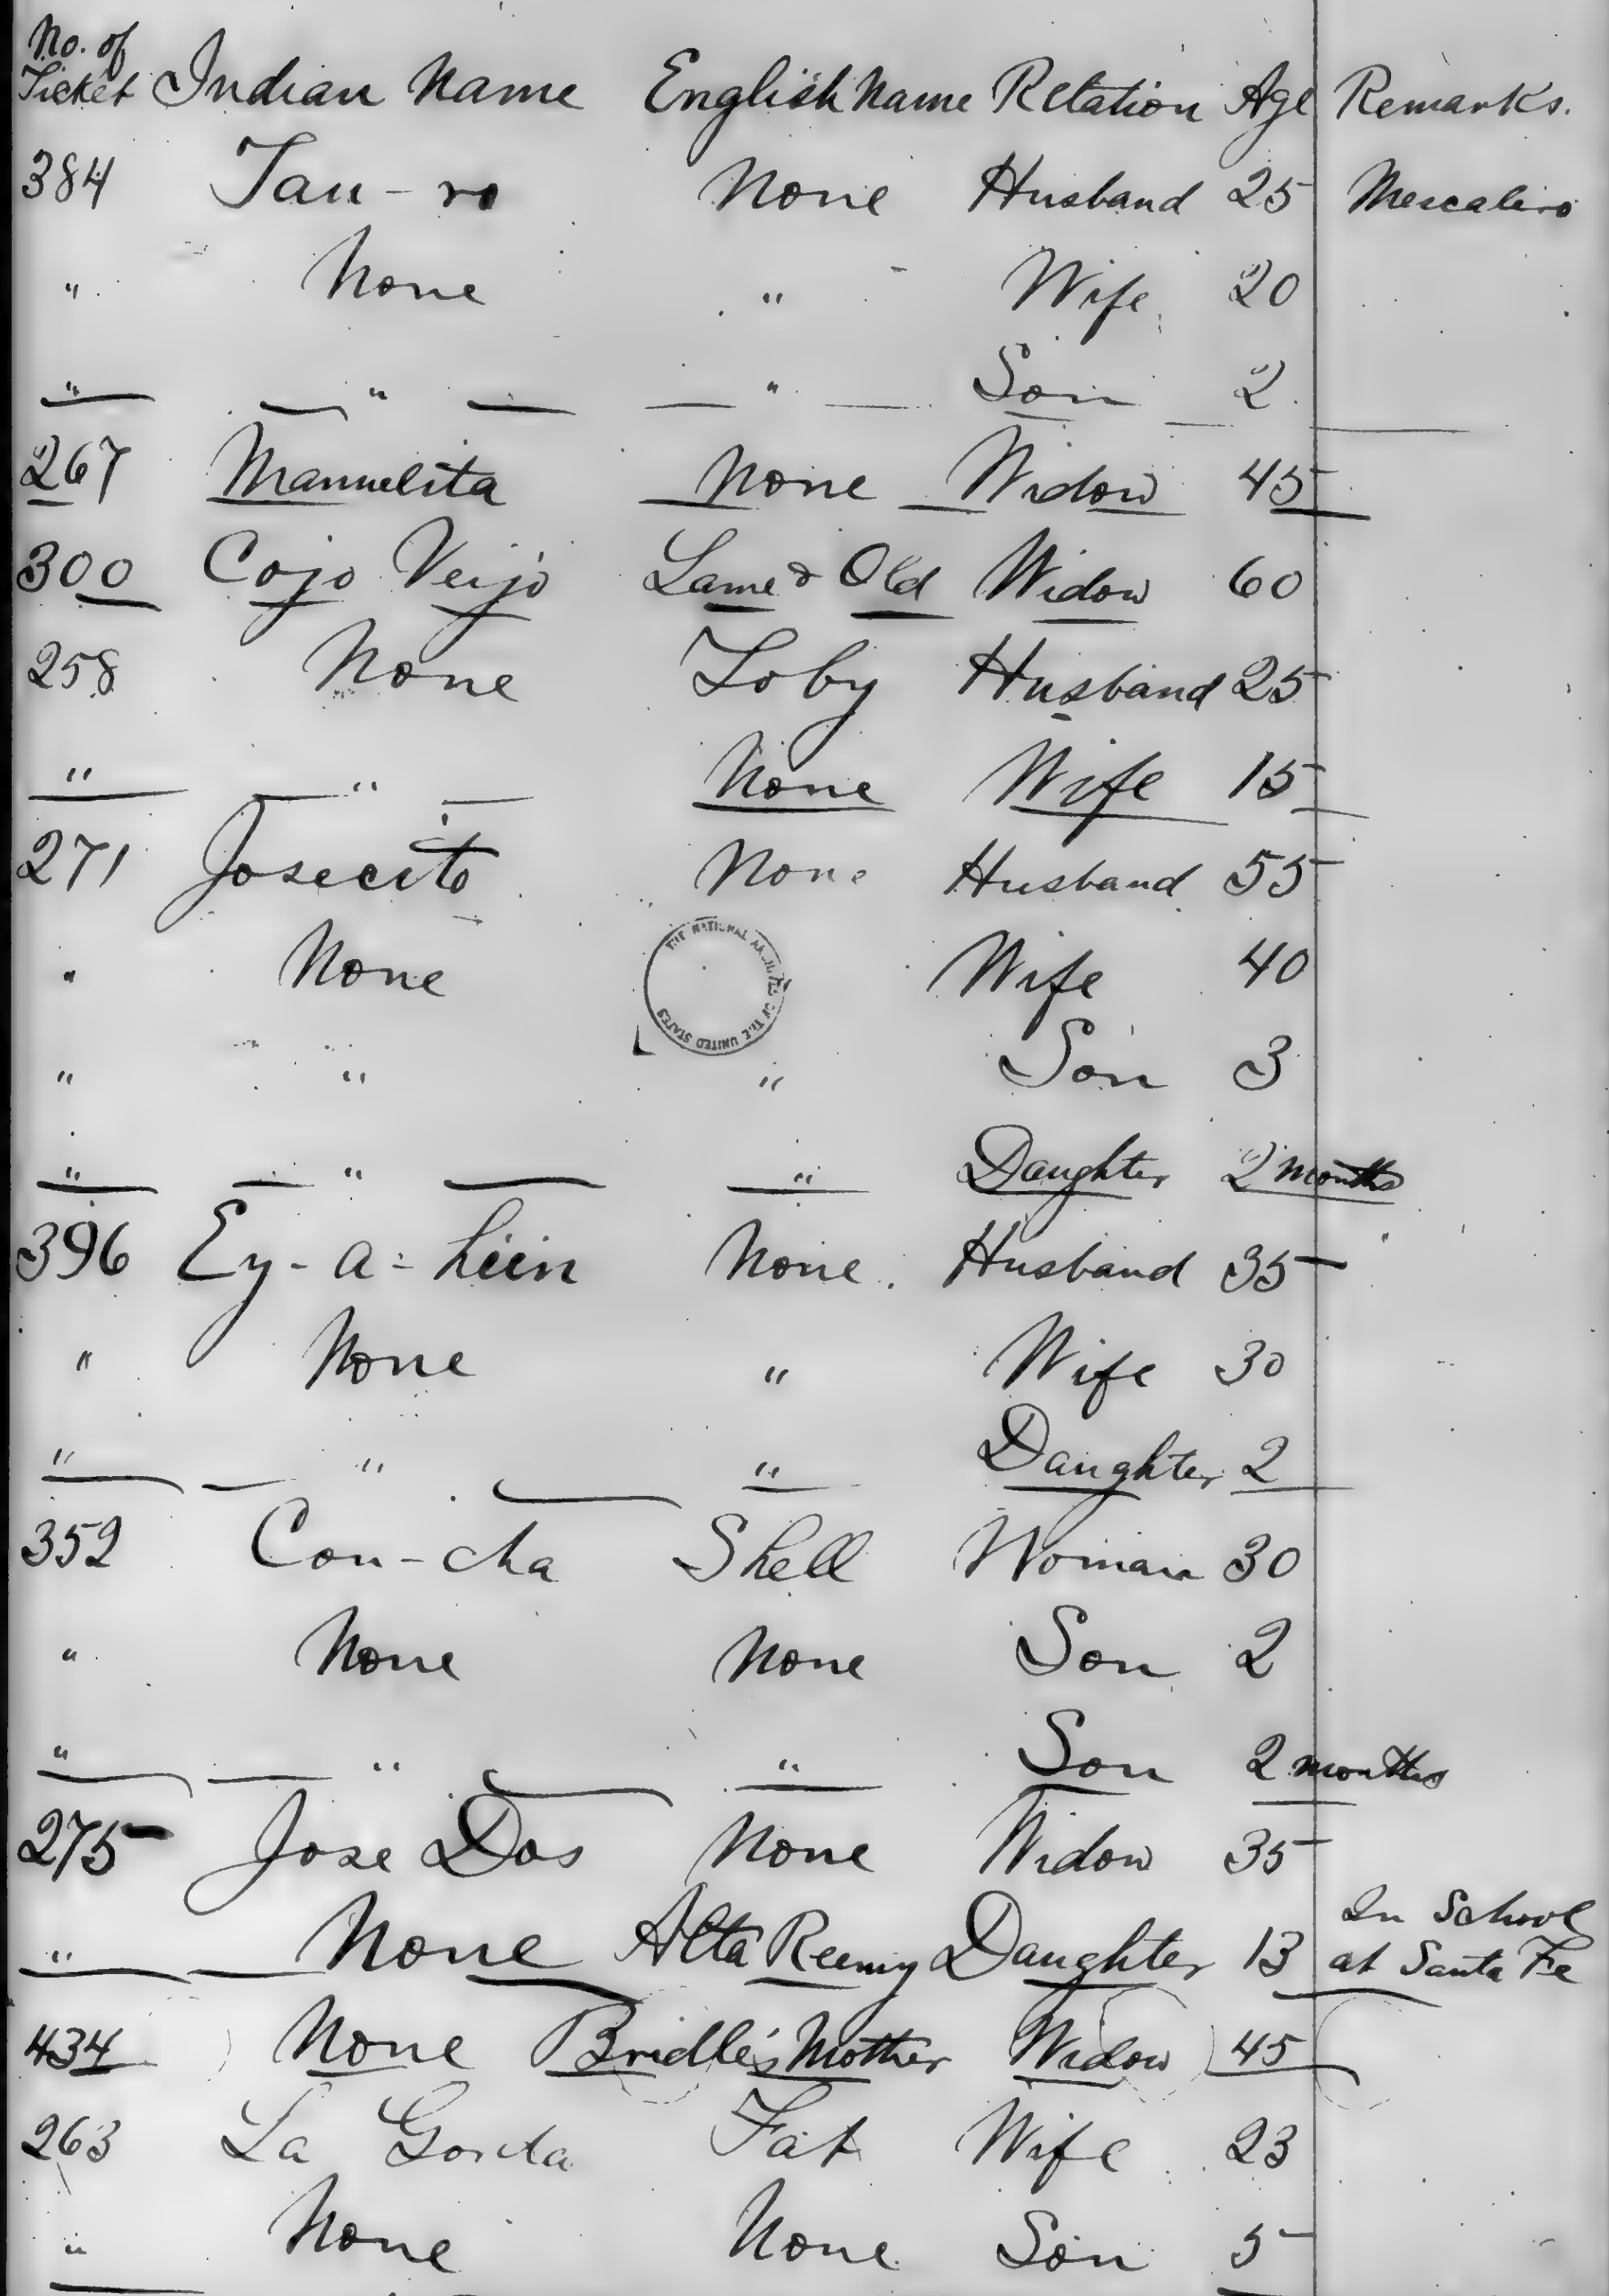 No. of
Ticket Indian Name English Name Relation Age Remarks.
384 Tau-ro None Husband 25 Mescalero
" None " Wife 20
" " " Son 2
267 Manuelita None Widow 45
300 Cojo Veijo Lame & Old Widow 60
258 None Toby Husband 25
" " None Wife 15
271 Josecito None Husband 55
" None Wife 40
THE NATIONAL ARCHIVES OF THE UNITED STATES
" " " Son 3
" " " Daughter 2 months
396 Ey-a-hein None. Husband 35
" None " Wife 30
" " " Daughter 2
352 Con-cha Shell Woman 30
" None None Son 2
" " " Son 2 months
275 Jose Dos None Widow 35
" None Alta Reemy Daughter 13 In School
at Santa Fe
434 None Bridle's Mother Widow 45
263 La Gorda Fat Wife 23
" None None Son 5